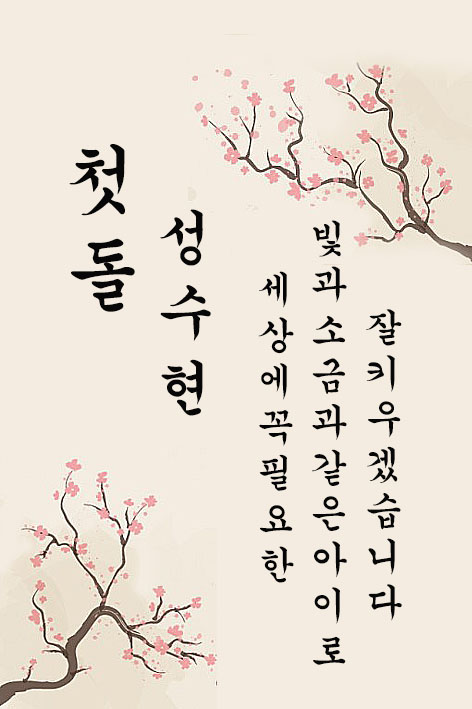 첫돌
성수현
세상에꼭필요한
빛과소금과같은아이로
잘키우겠습니다